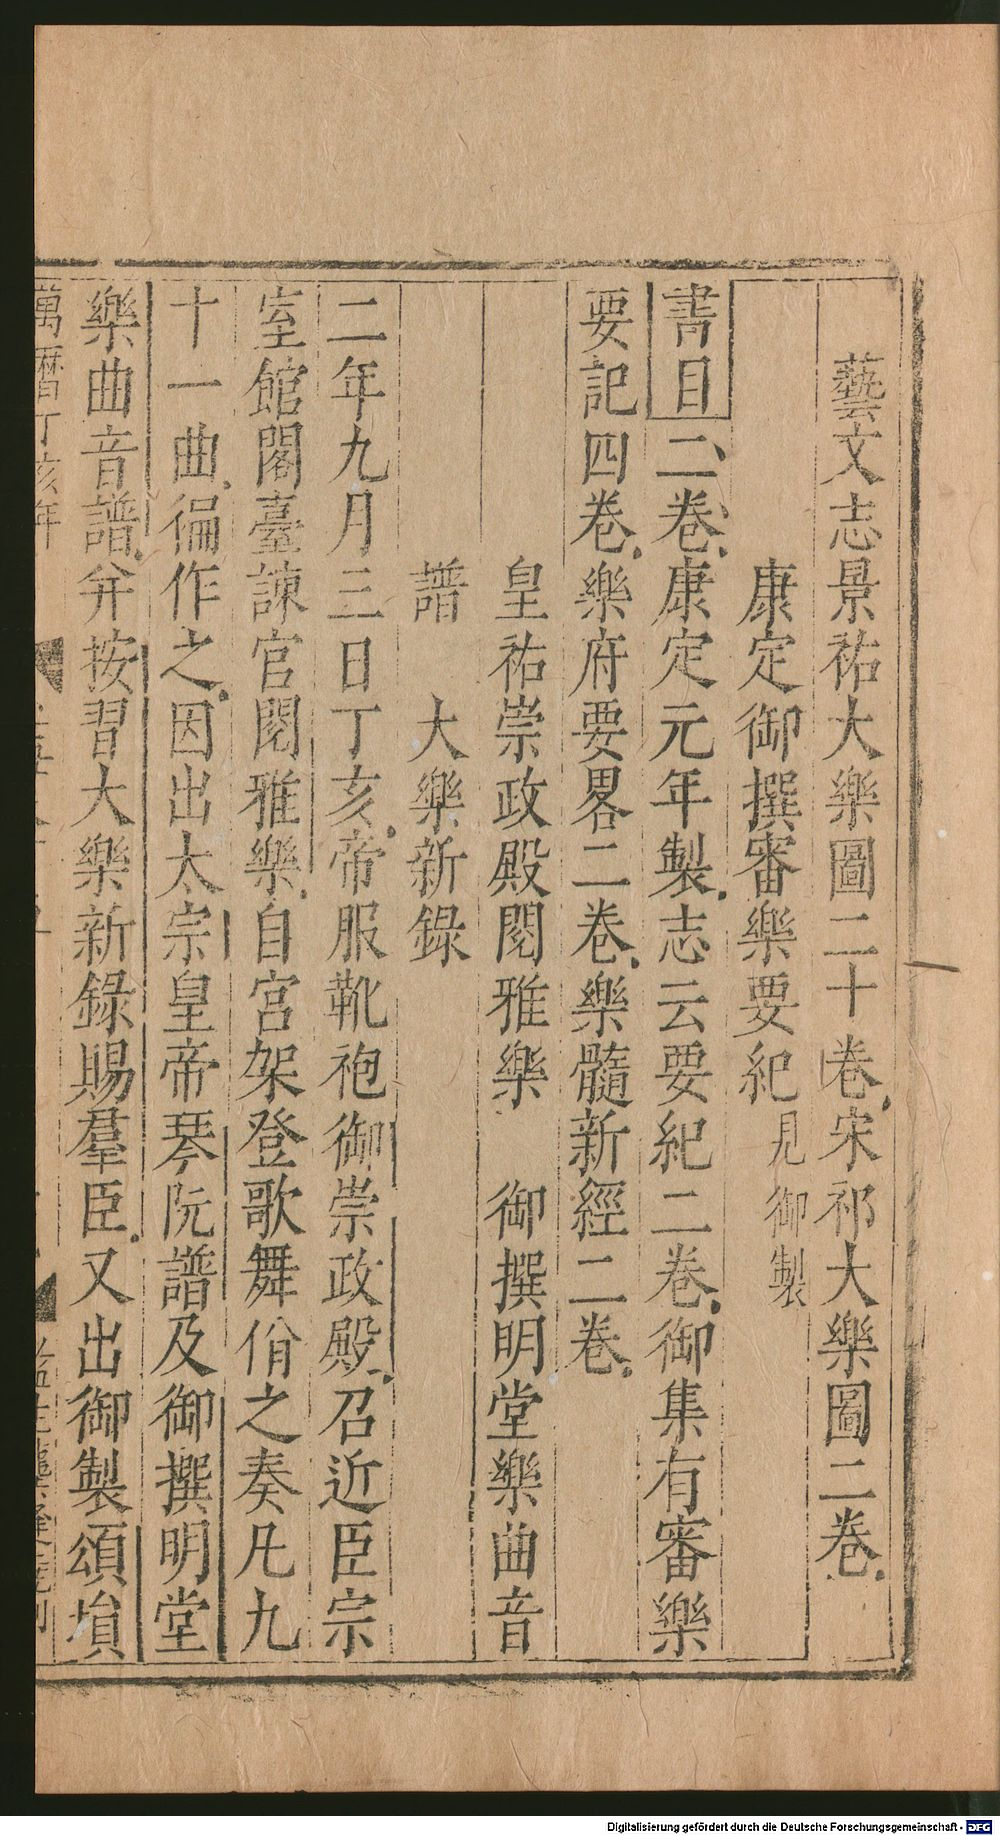 藝文志景祐大樂圖二十卷宋祁大樂圖二卷
康定御撰審樂要紀見御製
書目二卷康定元年製志云要紀二卷御集有審樂
要記四卷樂府要畧二卷樂髓新經二卷
皇祐崇政殿閱雅樂 御撰明堂樂曲音
譜 大樂新錄
二年九月三日丁亥帝服靴袍御崇政殿召近臣宗
室館閣臺諫官閱雅樂自宮架登歌舞佾之奏凡九
十一曲徧作之因出太宗皇帝琴阮譜及御撰明堂
樂曲音譜并按習大樂新錄賜羣臣又出御製頌塤
萬曆丁亥年
Digitalisierung gefördert durch die Deutsche Forschungsgemeinschaft - DFG